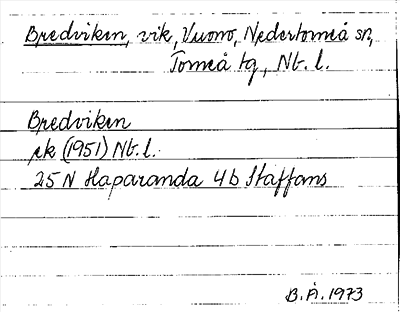 Bredviken, vik, Vuono, Nedertorneå sn,
Torneå tg, Nb. l.
Bredviken
ek (1951) Nb. l.
25 N Haparanda 4b Staffans
B.Å. 1973